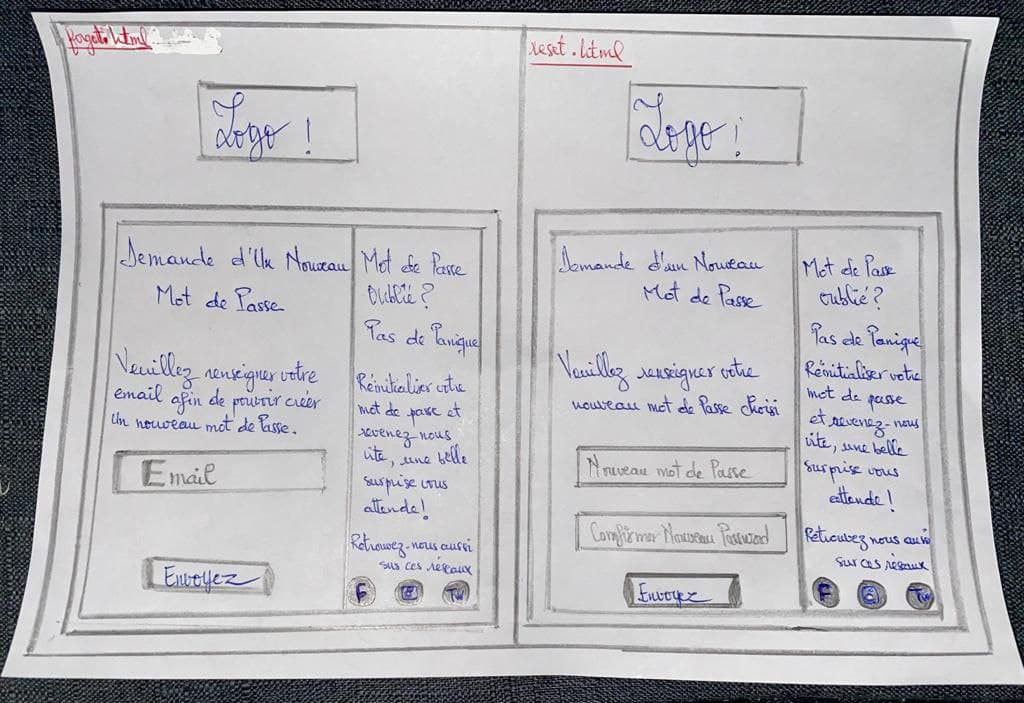 forgot.html
Logo !
Demande d'Un Nouveau
Mot de Passe
Veuillez renseigner votre
email afin de pouvoir créer
Un nouveau mot de Passe.
Email
Envoyez
Mot de Passe
Oublié ?
Pas de Panique
Réinitialiser votre
mot de passe et
revenez-nous
vite, une belle
surprise vous
attende !
Retrouvez-nous aussi
sur ces réseaux
F
Tw
reset.html
Logo !
Demande d'un Nouveau
Mot de Passe
Veuillez renseigner votre
nouveau mot de Passe choisi
Nouveau mot de Passe
Confirmer Nouveau Password
Envoyez
Mot de Passe
oublié ?
Pas de Panique
Réinitialiser votre
mot de passe
et revenez-nous
vite, une belle
surprise vous
attende !
Retrouvez nous aussi
sur ces réseaux
F
Tw